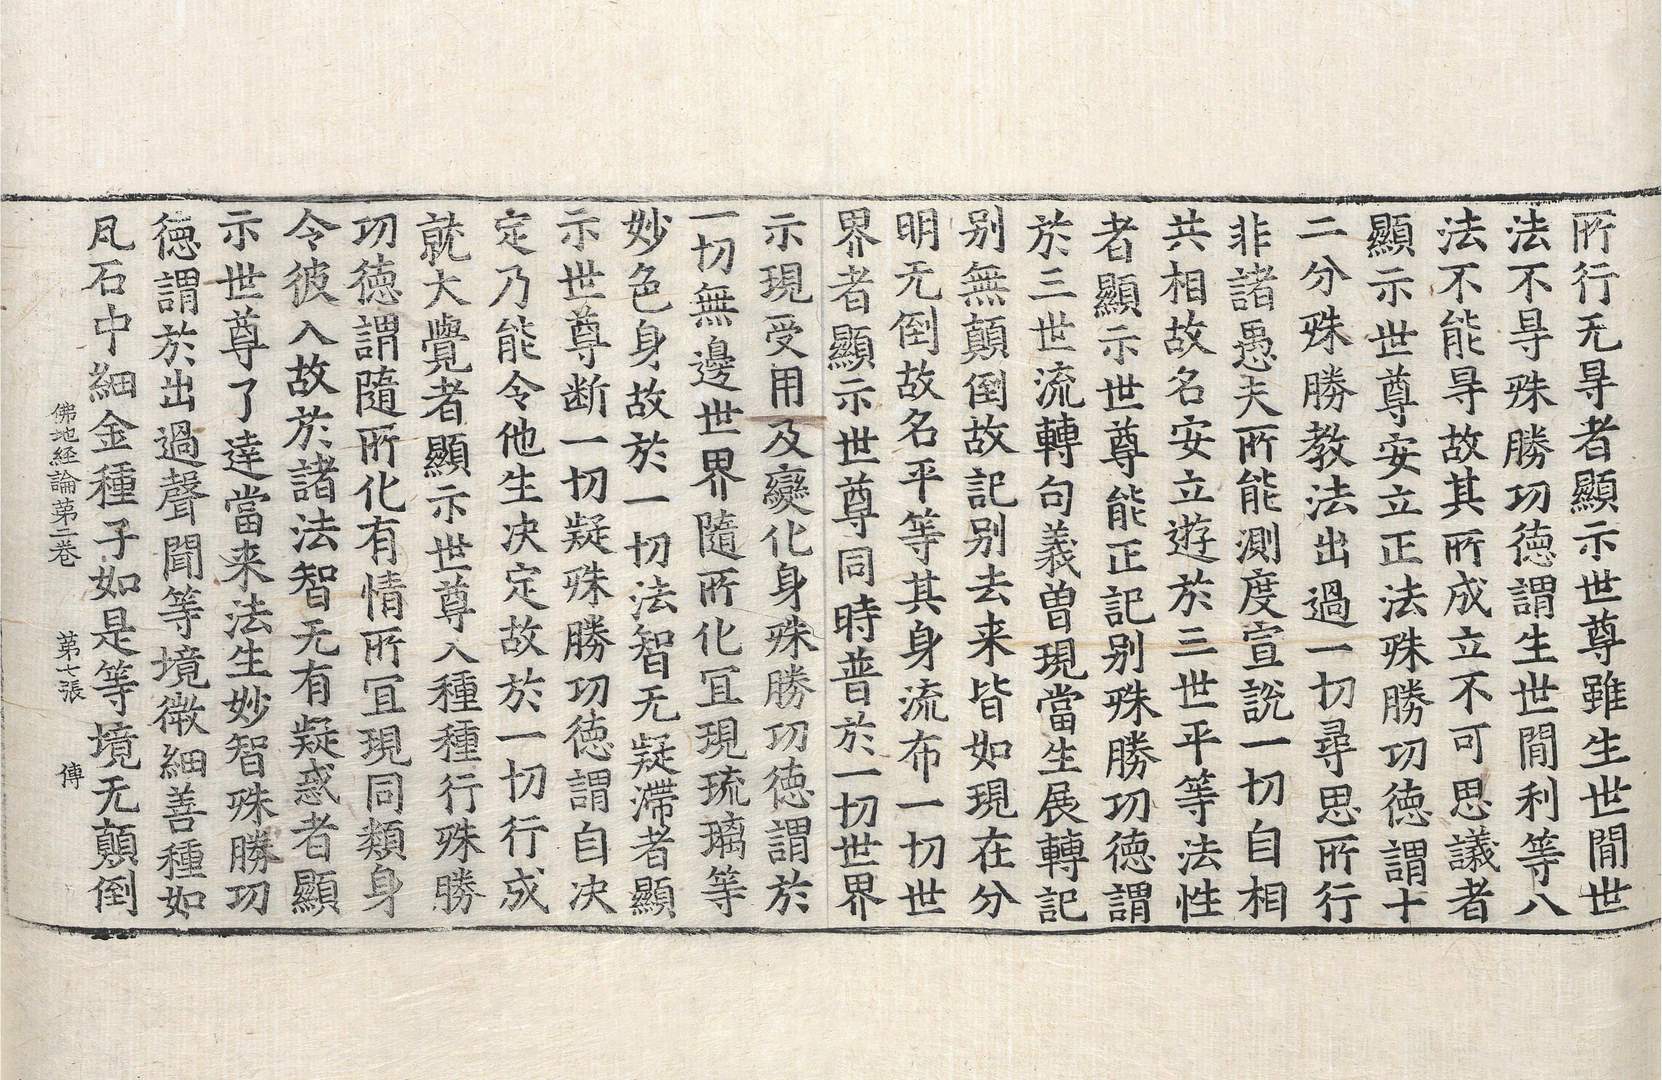 所行无㝵者顯示世尊雖生世間世
法不㝵殊勝功德謂生世間利等八
法不能㝵故其所成立不可思議者
顯示世尊安立正法殊勝功德謂十
二分殊勝教法出過一切尋思所行
非諸愚夫所能測度宣説一切自相
共相故名安立遊於三世平等法性
者顯示世尊能正記别殊勝功德謂
於三世流轉句義曽現當生展轉記
别無顛倒故記别去来皆如現在分
明无倒故名平等其身流布一切世
界者顯示世尊同時普於一切世界
示現受用及變化身殊勝功德謂於
一切無邊世界隨所化冝現琉璃等
妙色身故於一切法智无疑滯者顯
示世尊断一切疑殊勝功德謂自决
定乃能令他生决定故於一切行成
就大覺者顯示世尊入種種行殊勝
功德謂隨所化有情所冝現同類身
令彼入故於諸法智无有疑惑者顯
示世尊了達當来法生妙智殊勝功
德謂於出過聲聞等境微細善種如
凡石中細金種子如是等境无顛倒
佛地経論苐二巻 苐七張 傳